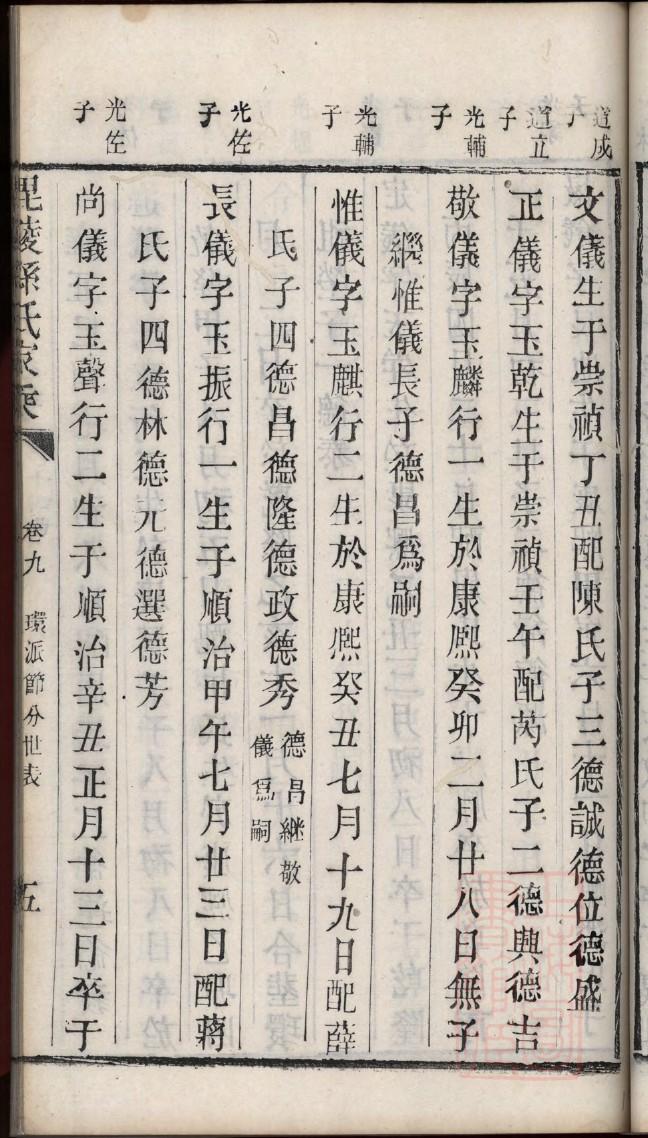 道成子
文儀生于崇禎丁丑配陳氏子三德誠德位德盛
道立子
正儀字玉乾生于崇禎壬午配芮氏子二德興德吉
光輔子
敬儀字玉麟行一生於康熙癸卯二月廿八日無子
繼惟儀長子德昌為嗣
光輔子
惟儀字玉麒行二生於康熙癸丑七月十九日配薛
氏子四德昌德隆德政德秀
德昌継敬
儀為嗣
光佐子
長儀字玉振行一生于順治甲午七月廿三日配蔣
氏子四德林德元德選德芳
光佐子
尚儀字玉聲行二生于順治辛丑正月十三日卒于
毘陵孫氏家乘
卷九
環派節分世表
五